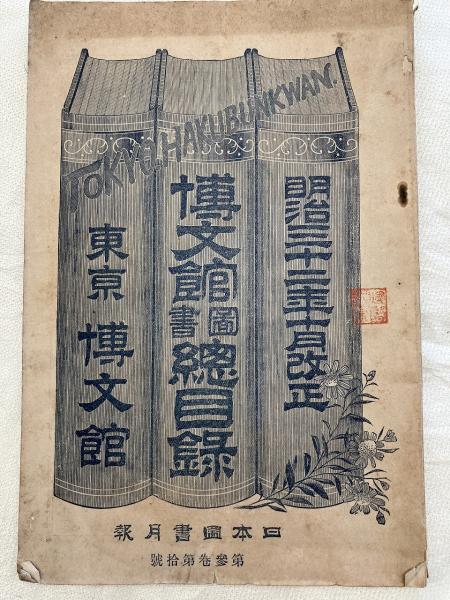 TOKYO, HAKUBUNKWAN.
明治三十二年十月改正
博文館圖書總目錄
東京 博文館
日本圖書月報
第參卷第拾號